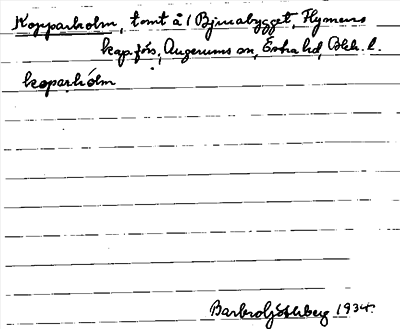 Kopparholm, tomt å 1 Björnabygget, Flymens
kap.förs, Augerums sn, Östra hd, Blek. l.
koparhólm
Barbro Göthberg 1934.